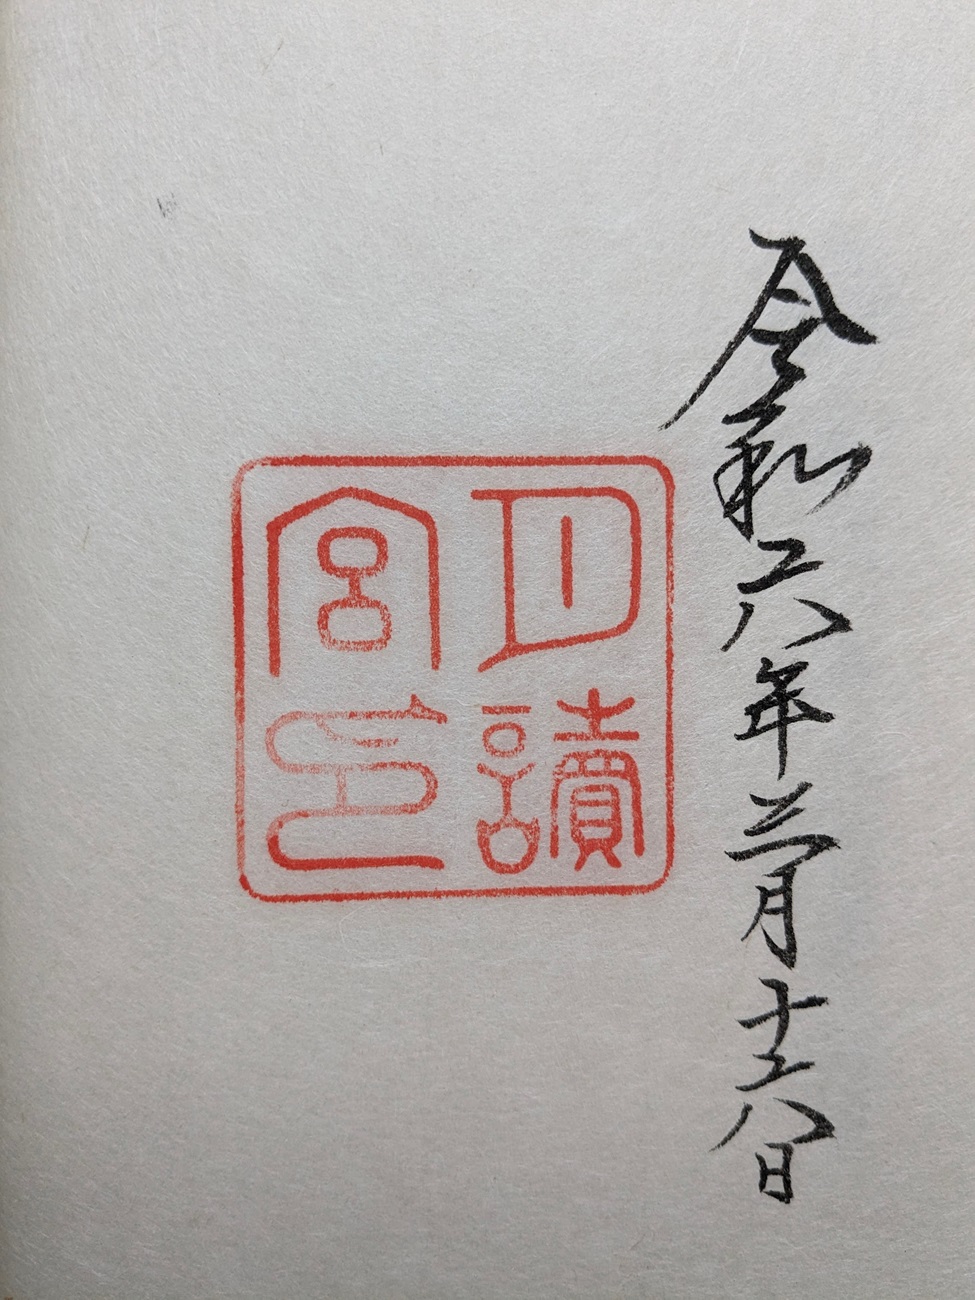 令和六年三月十六日
月讀
宮印